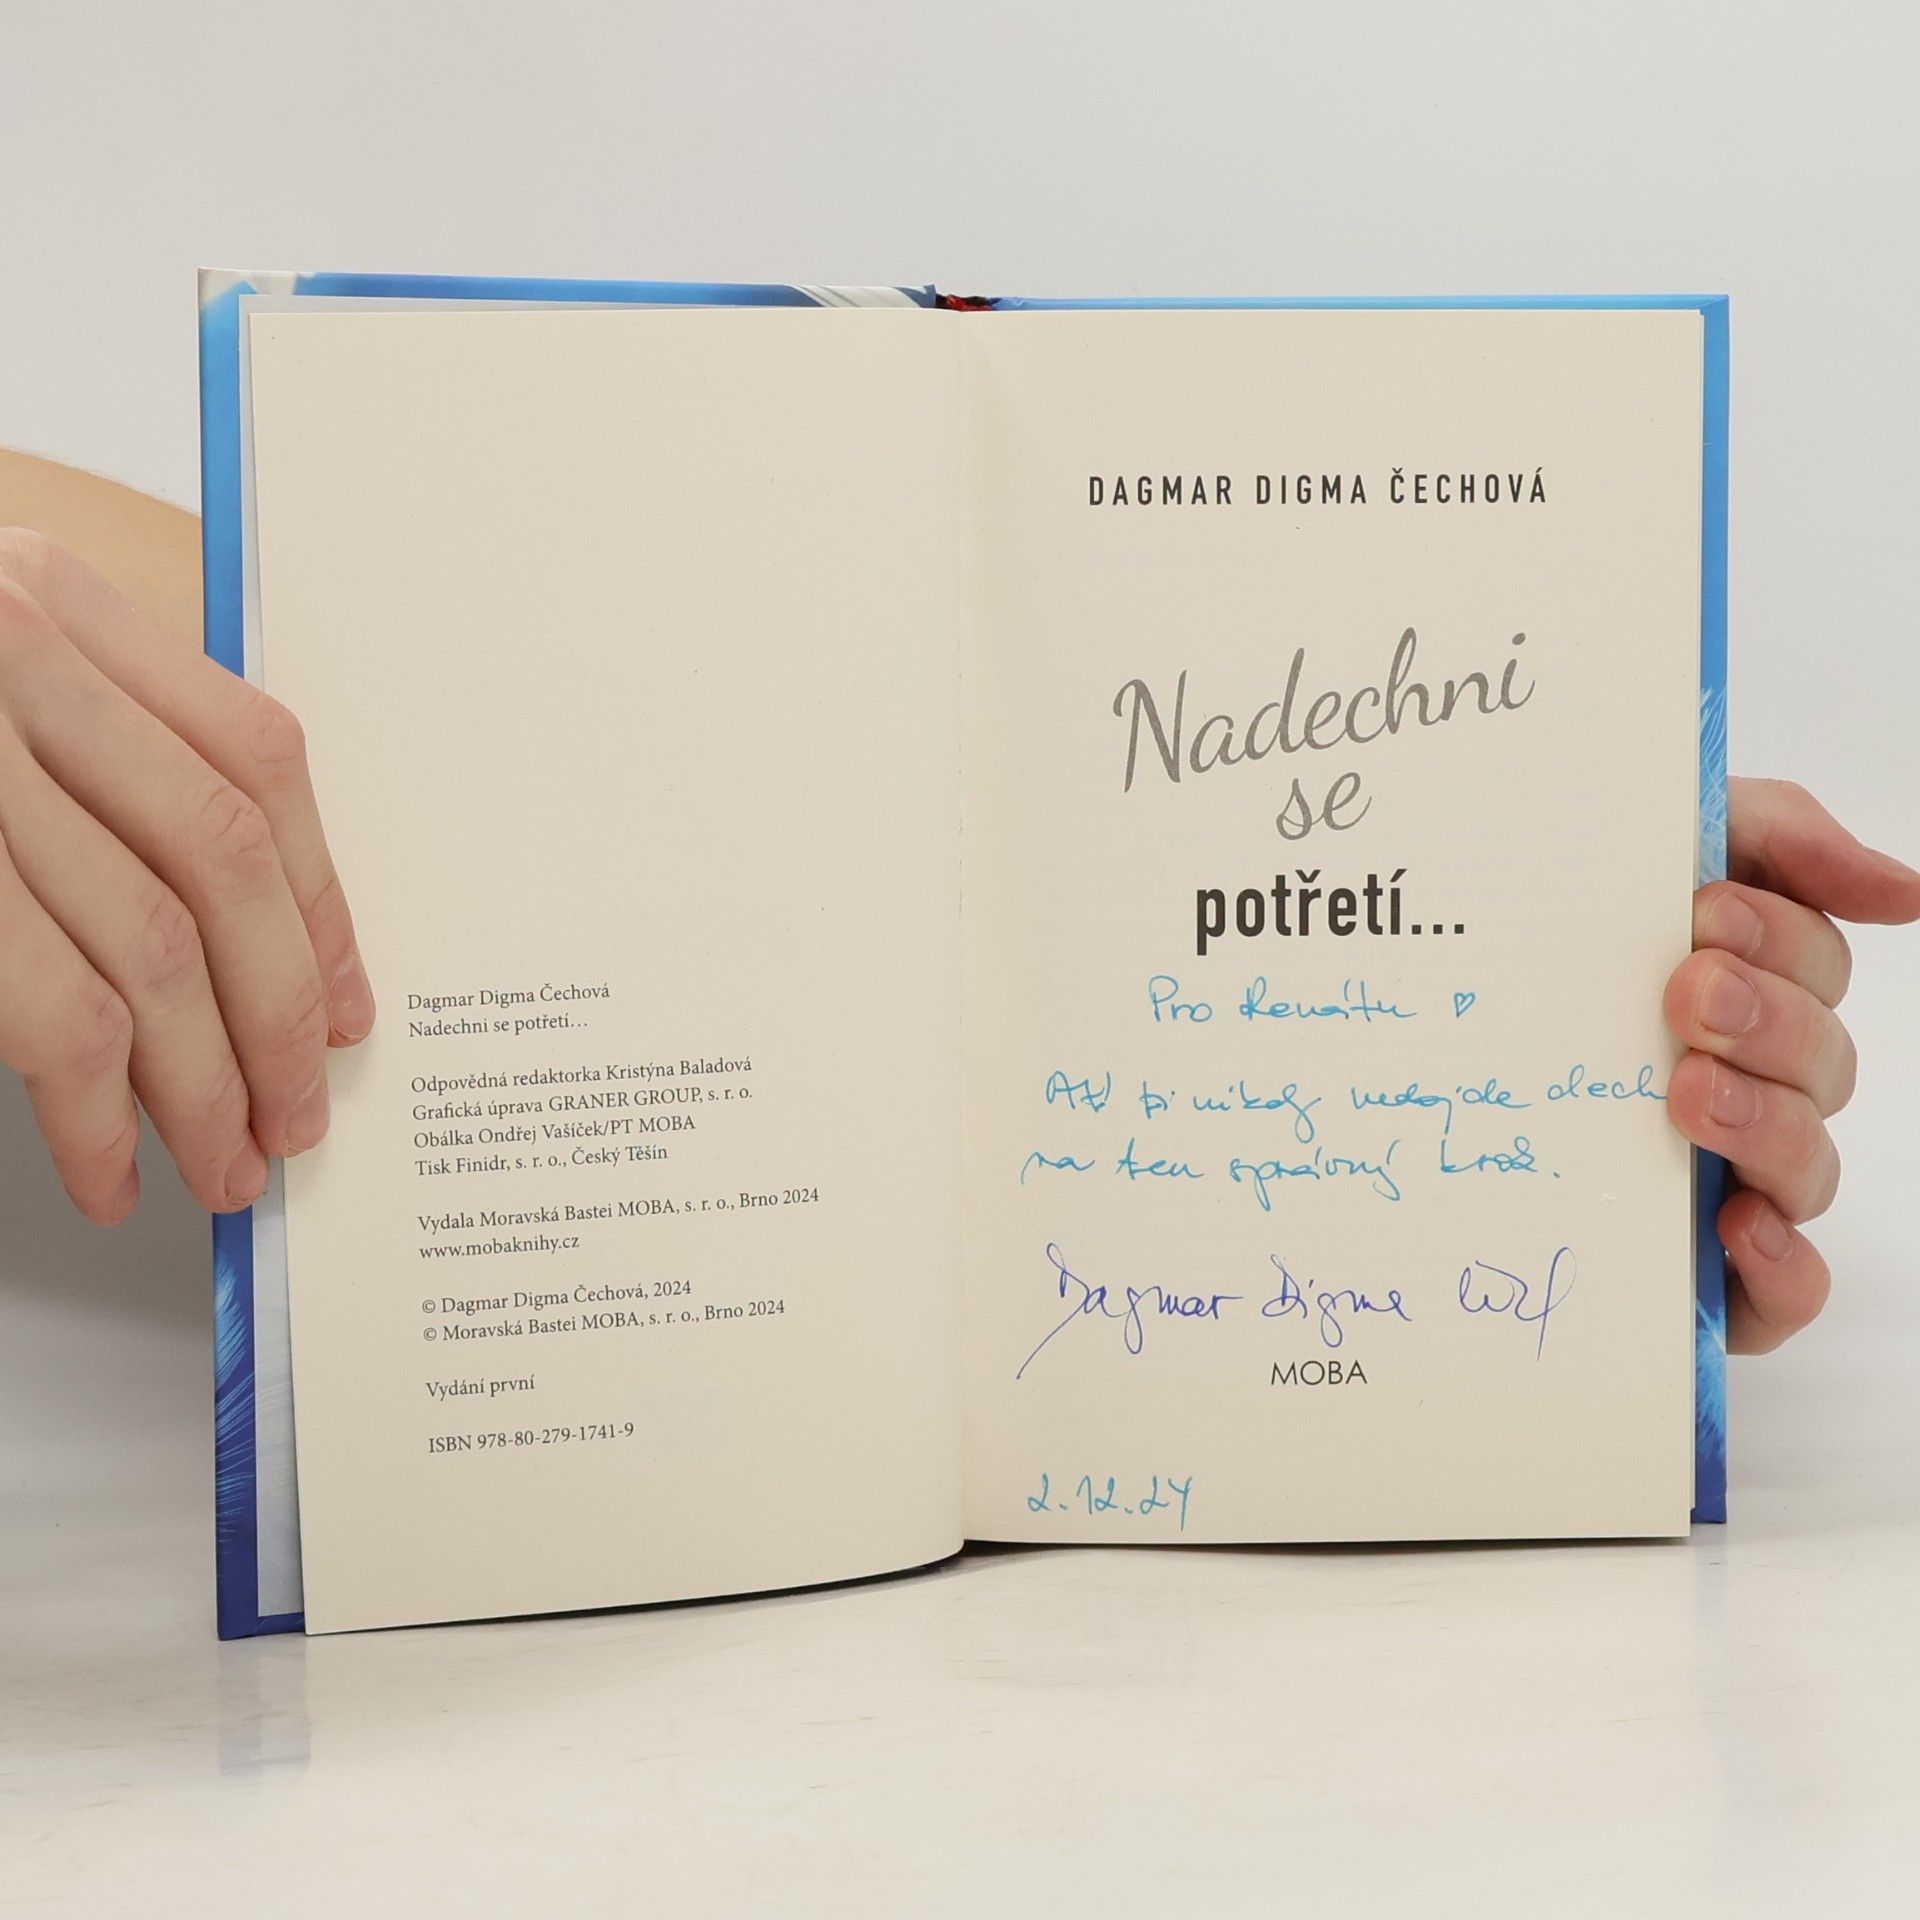 Dagmar Digma Čechová
Nadechni se potřetí…
Odpovědná redaktorka Kristýna Baladová
Grafická úprava GRANER GROUP, s. r. o.
Obálka Ondřej Vašíček/PT MOBA
Tisk Finidr, s. r. o., Český Těšín
Vydala Moravská Bastei MOBA, s. r. o., Brno 2024
www.mobaknihy.cz
© Dagmar Digma Čechová, 2024
© Moravská Bastei MOBA, s. r. o., Brno 2024
Vydání první
ISBN 978-80-279-1741-9
DAGMAR DIGMA ČECHOVÁ
Nadechni
se
potřetí...
Pro Renátu ♡
Ať ti nikdy nedojde dech
na ten správný krok.
Dagmar Digma
MOBA
2.12.24